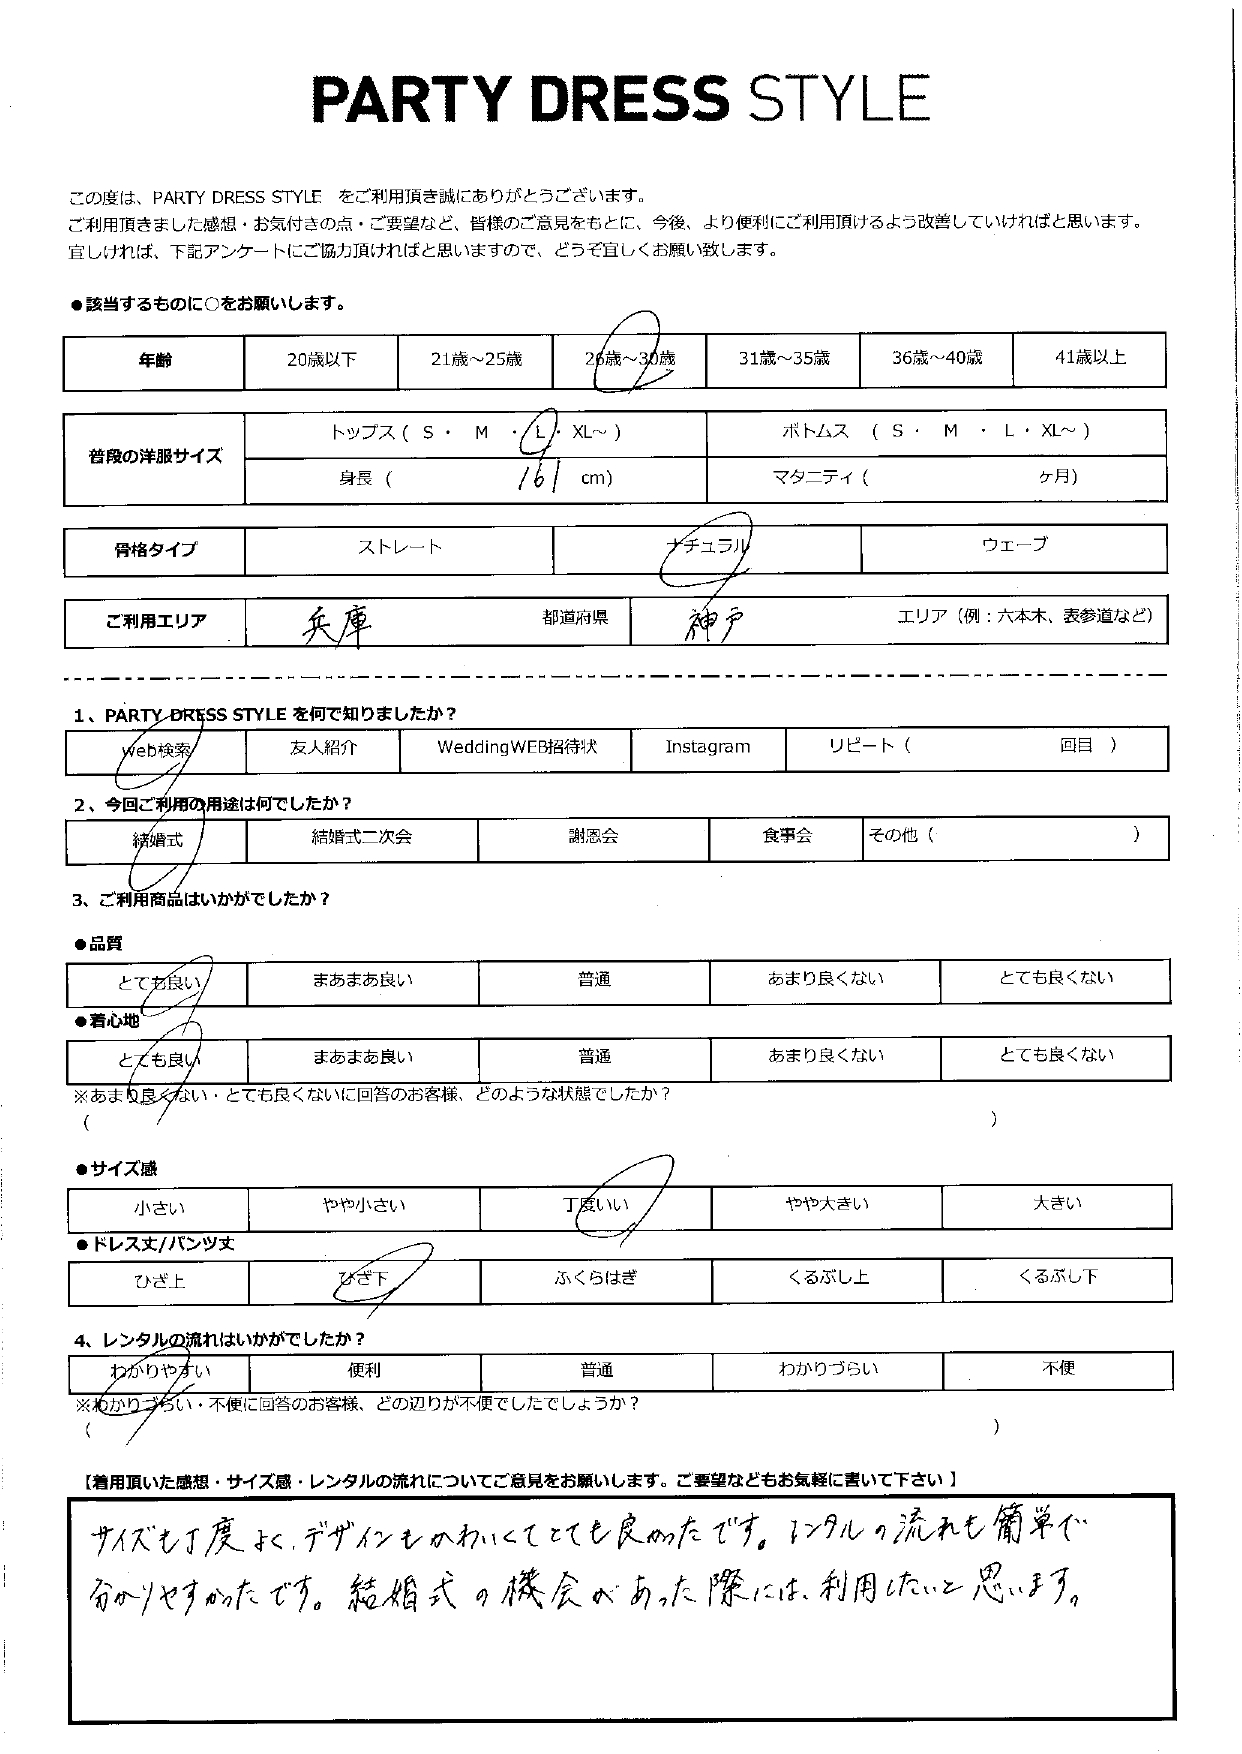 PARTY DRESS STYLE
この度は、PARTY DRESS STYLE をご利用頂き誠にありがとうございます。
ご利用頂きました感想・お気付きの点・ご要望など、皆様のご意見をもとに、今後、より便利にご利用頂けるよう改善していければと思います。
宜しければ、下記アンケートにご協力頂ければと思いますので、どうぞ宜しくお願い致します。
●該当するものに○をお願いします。
年齢 20歳以下 21歳～25歳 26歳～30歳 31歳～35歳 36歳～40歳 41歳以上
普段の洋服サイズ
トップス ( S ・ M ・ L ・ XL～ ) ボトムス ( S ・ M ・ L ・ XL～ )
身長 ( 161 cm) マタニティ ( ヶ月)
骨格タイプ ストレート ナチュラル ウェーブ
ご利用エリア 兵庫 都道府県 神戸 エリア（例：六本木、表参道など）
1、PARTY DRESS STYLE を何で知りましたか？
web検索 友人紹介 WeddingWEB招待状 Instagram リピート ( 回目 )
2、今回ご利用の用途は何でしたか？
結婚式 結婚式二次会 謝恩会 食事会 その他 ( )
3、ご利用商品はいかがでしたか？
●品質
とても良い まあまあ良い 普通 あまり良くない とても良くない
●着心地
とても良い まあまあ良い 普通 あまり良くない とても良くない
※あまり良くない・とても良くないに回答のお客様、どのような状態でしたか？
( )
●サイズ感
小さい やや小さい 丁度いい やや大きい 大きい
●ドレス丈/パンツ丈
ひざ上 ひざ下 ふくらはぎ くるぶし上 くるぶし下
4、レンタルの流れはいかがでしたか？
わかりやすい 便利 普通 わかりづらい 不便
※わかりづらい・不便に回答のお客様、どの辺りが不便でしたでしょうか？
( )
【着用頂いた感想・サイズ感・レンタルの流れについてご意見をお願いします。ご要望などもお気軽に書いて下さい 】
サイズも丁度よく、デザインもかわいくてとても良かったです。レンタルの流れも簡単で
分かりやすかったです。結婚式の機会があった際には、利用したいと思います。